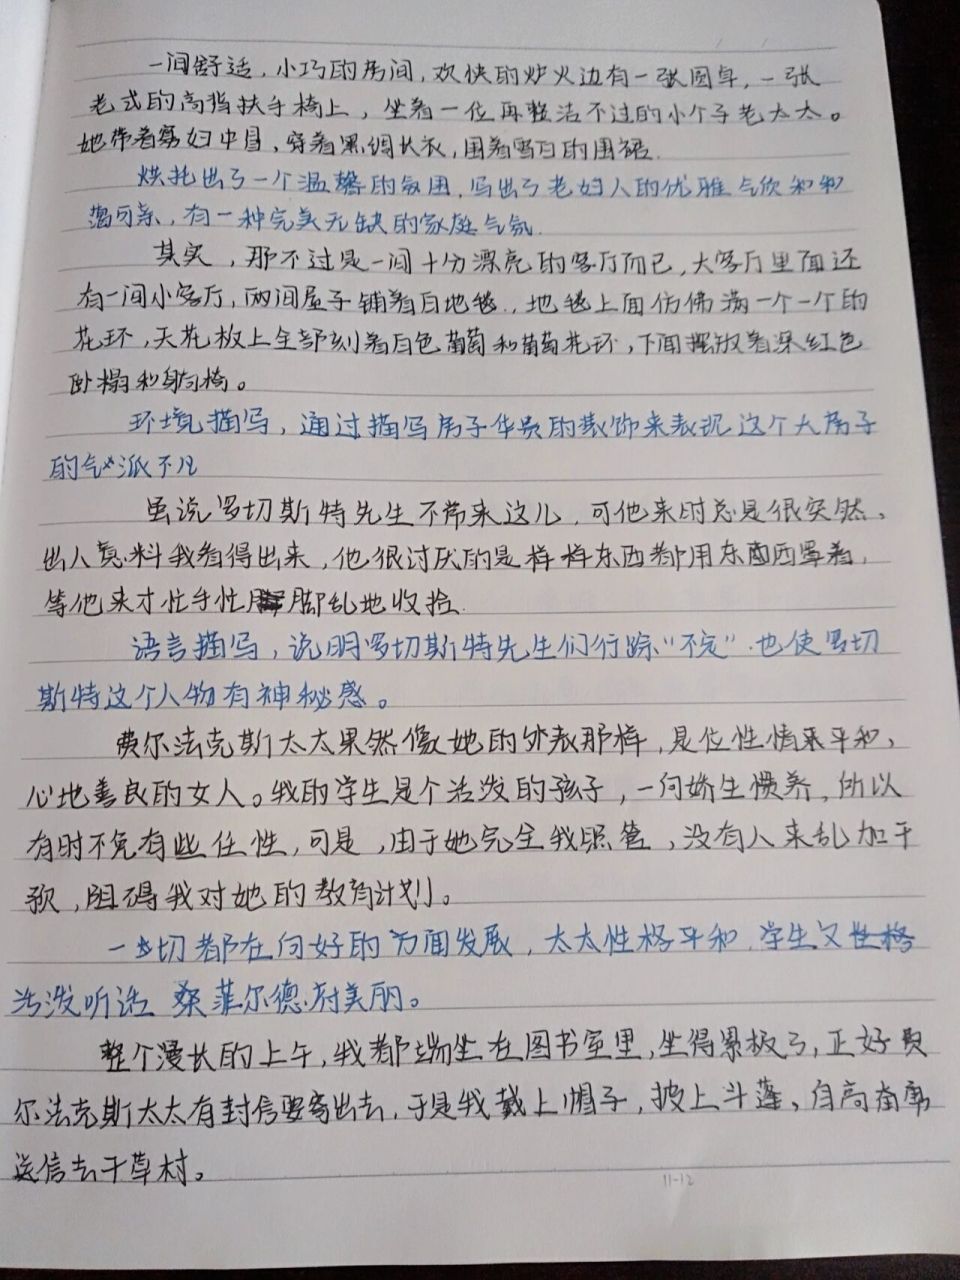 一间舒适，小巧的房间，欢快的炉火边有一张圆桌，一张
老式的高背扶手椅上，坐着一位再整洁不过的小个子老太太。
她带着寡妇中冒，穿着黑绸长衣，围着雪白的围裙.
烘托出了一个温馨的氛围，写出了老妇人的优雅气欣和和
蔼可亲，有一种完美无缺的家庭气氛.
其实，那不过是一间十分漂亮的客厅而已，大客厅里面还
有一间小客厅，两间屋子铺着白地毯，地毯上面仿佛满一个一个的
花环，天花板上全部刻着白色葡萄和葡萄花环，下面摆放着深红色
卧榻和躺椅。
环境描写，通过描写房子华贵的装饰来表现这个大房子
的气派不凡
虽说罗切斯特先生不常来这儿，可他来时总是很突然、
出人意料我看得出来，他很讨厌的是样样东西都用东西罩着，
等他来才忙手忙脚乱地收拾.
语言描写，说明罗切斯特先生们行踪“不定”.也使罗切
斯特这个人物有神秘感。
费尔法克斯太太果然像她的外表那样，是位性情柔平和，
心地善良的女人。我的学生是个活泼的孩子，一向娇生惯养，所以
有时不免有些任性，可是，由于她完全我照管，没有人来乱加干
预，阻碍我对她的教育计划。
一切都在向好的方面发展，太太性格平和，学生又性格
活泼听话 桑菲尔德府美丽。
整个漫长的上午，我都端坐在图书室里，坐得累极了，正好费
尔法克斯太太有封信要寄出去，于是我戴上帽子，披上斗蓬、自高奋勇
送信去干草村。
11-12